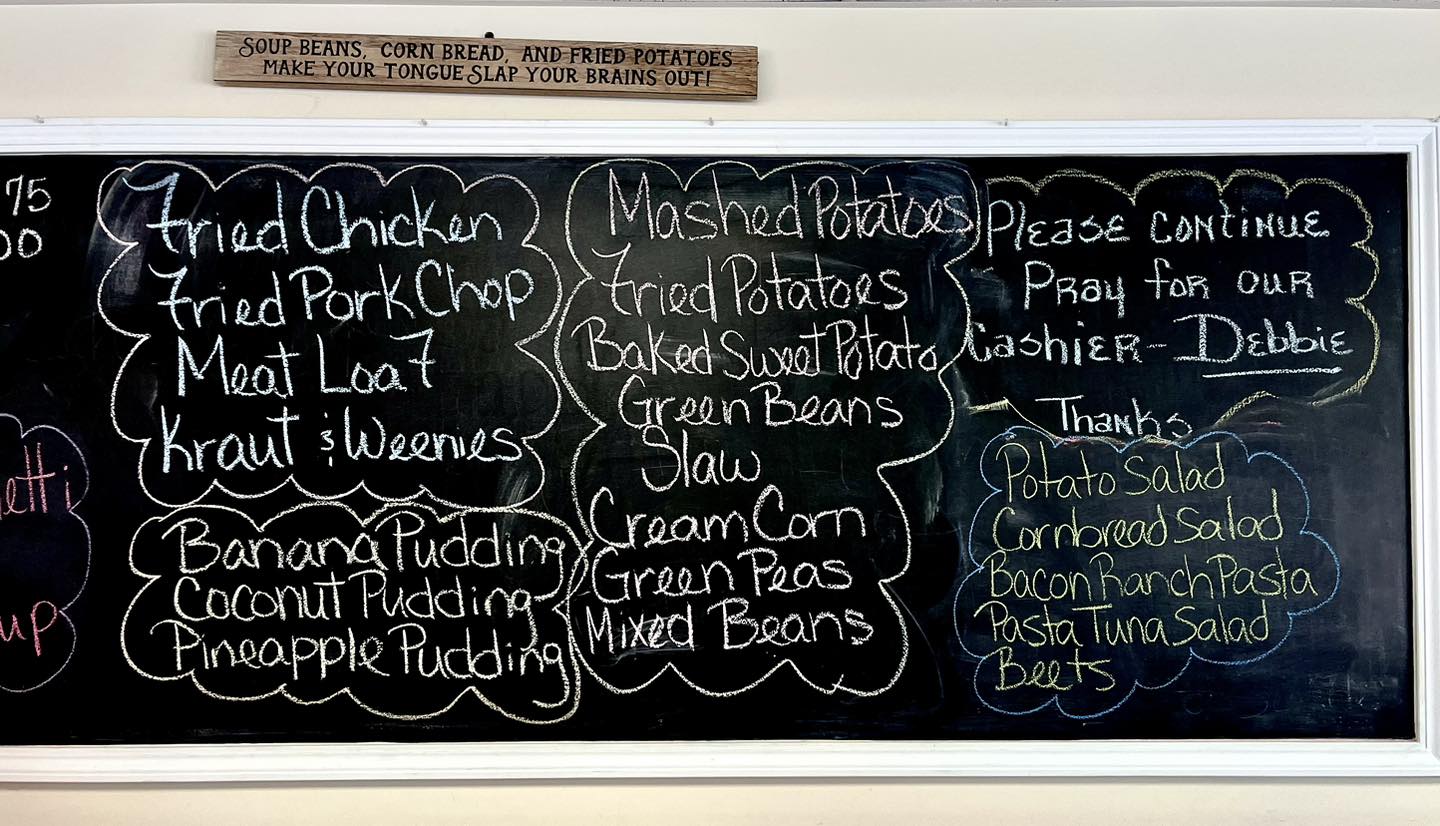 SOUP BEANS, CORN BREAD, AND FRIED POTATOES
MAKE YOUR TONGUE SLAP YOUR BRAINS OUT!
75
00
etti
up
Fried Chicken
Fried Pork Chop
Meat Loaf
Kraut & Weenies
Banana Pudding
Coconut Pudding
Pineapple Pudding
Mashed Potatoes
Fried Potatoes
Baked Sweet Potato
Green Beans
Slaw
Cream Corn
Green Peas
Mixed Beans
Please continue
Pray for our
Cashier - Debbie
Thanks
Potato Salad
Cornbread Salad
Bacon Ranch Pasta
Pasta Tuna Salad
Beets